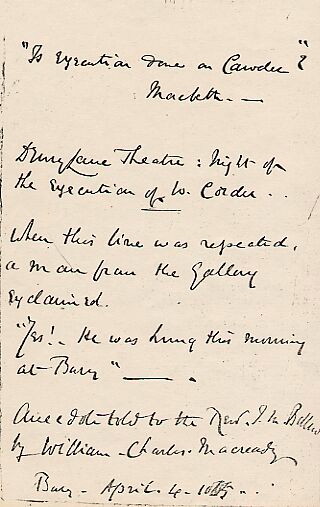 "Is execution done on Cawdor"?
Macbeth. —
Drury Lane Theatre: Night of
the execution of W. Corder . .
When this line was repeated,
a man from the Gallery
exclaimed.
"Yes! - He was hung this morning
at Bury" — .
Anecdote told to the Revd. J. M. Bellew
by William - Charles - Macready
Bury - April - 4 -